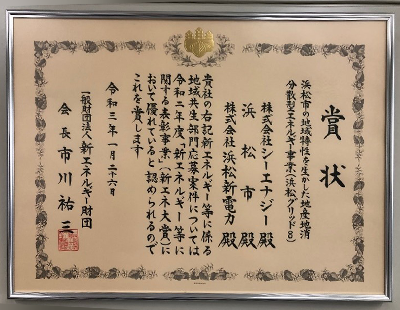 賞状
浜松市の地域特性を生かした地産地消
分散型エネルギー事業(浜松グリッド8)
株式会社シーエナジー殿
浜松市殿
株式会社浜松新電力殿
貴社の右記新エネルギー等に係る
地域共生部門応募案件については
令和二年度、「新エネルギー等に
関する表彰事業」(新エネ大賞)に
おいて優れていると認められるので
これを賞します
令和三年一月二十六日
一般財団法人新エネルギー財団
会長市川祐三